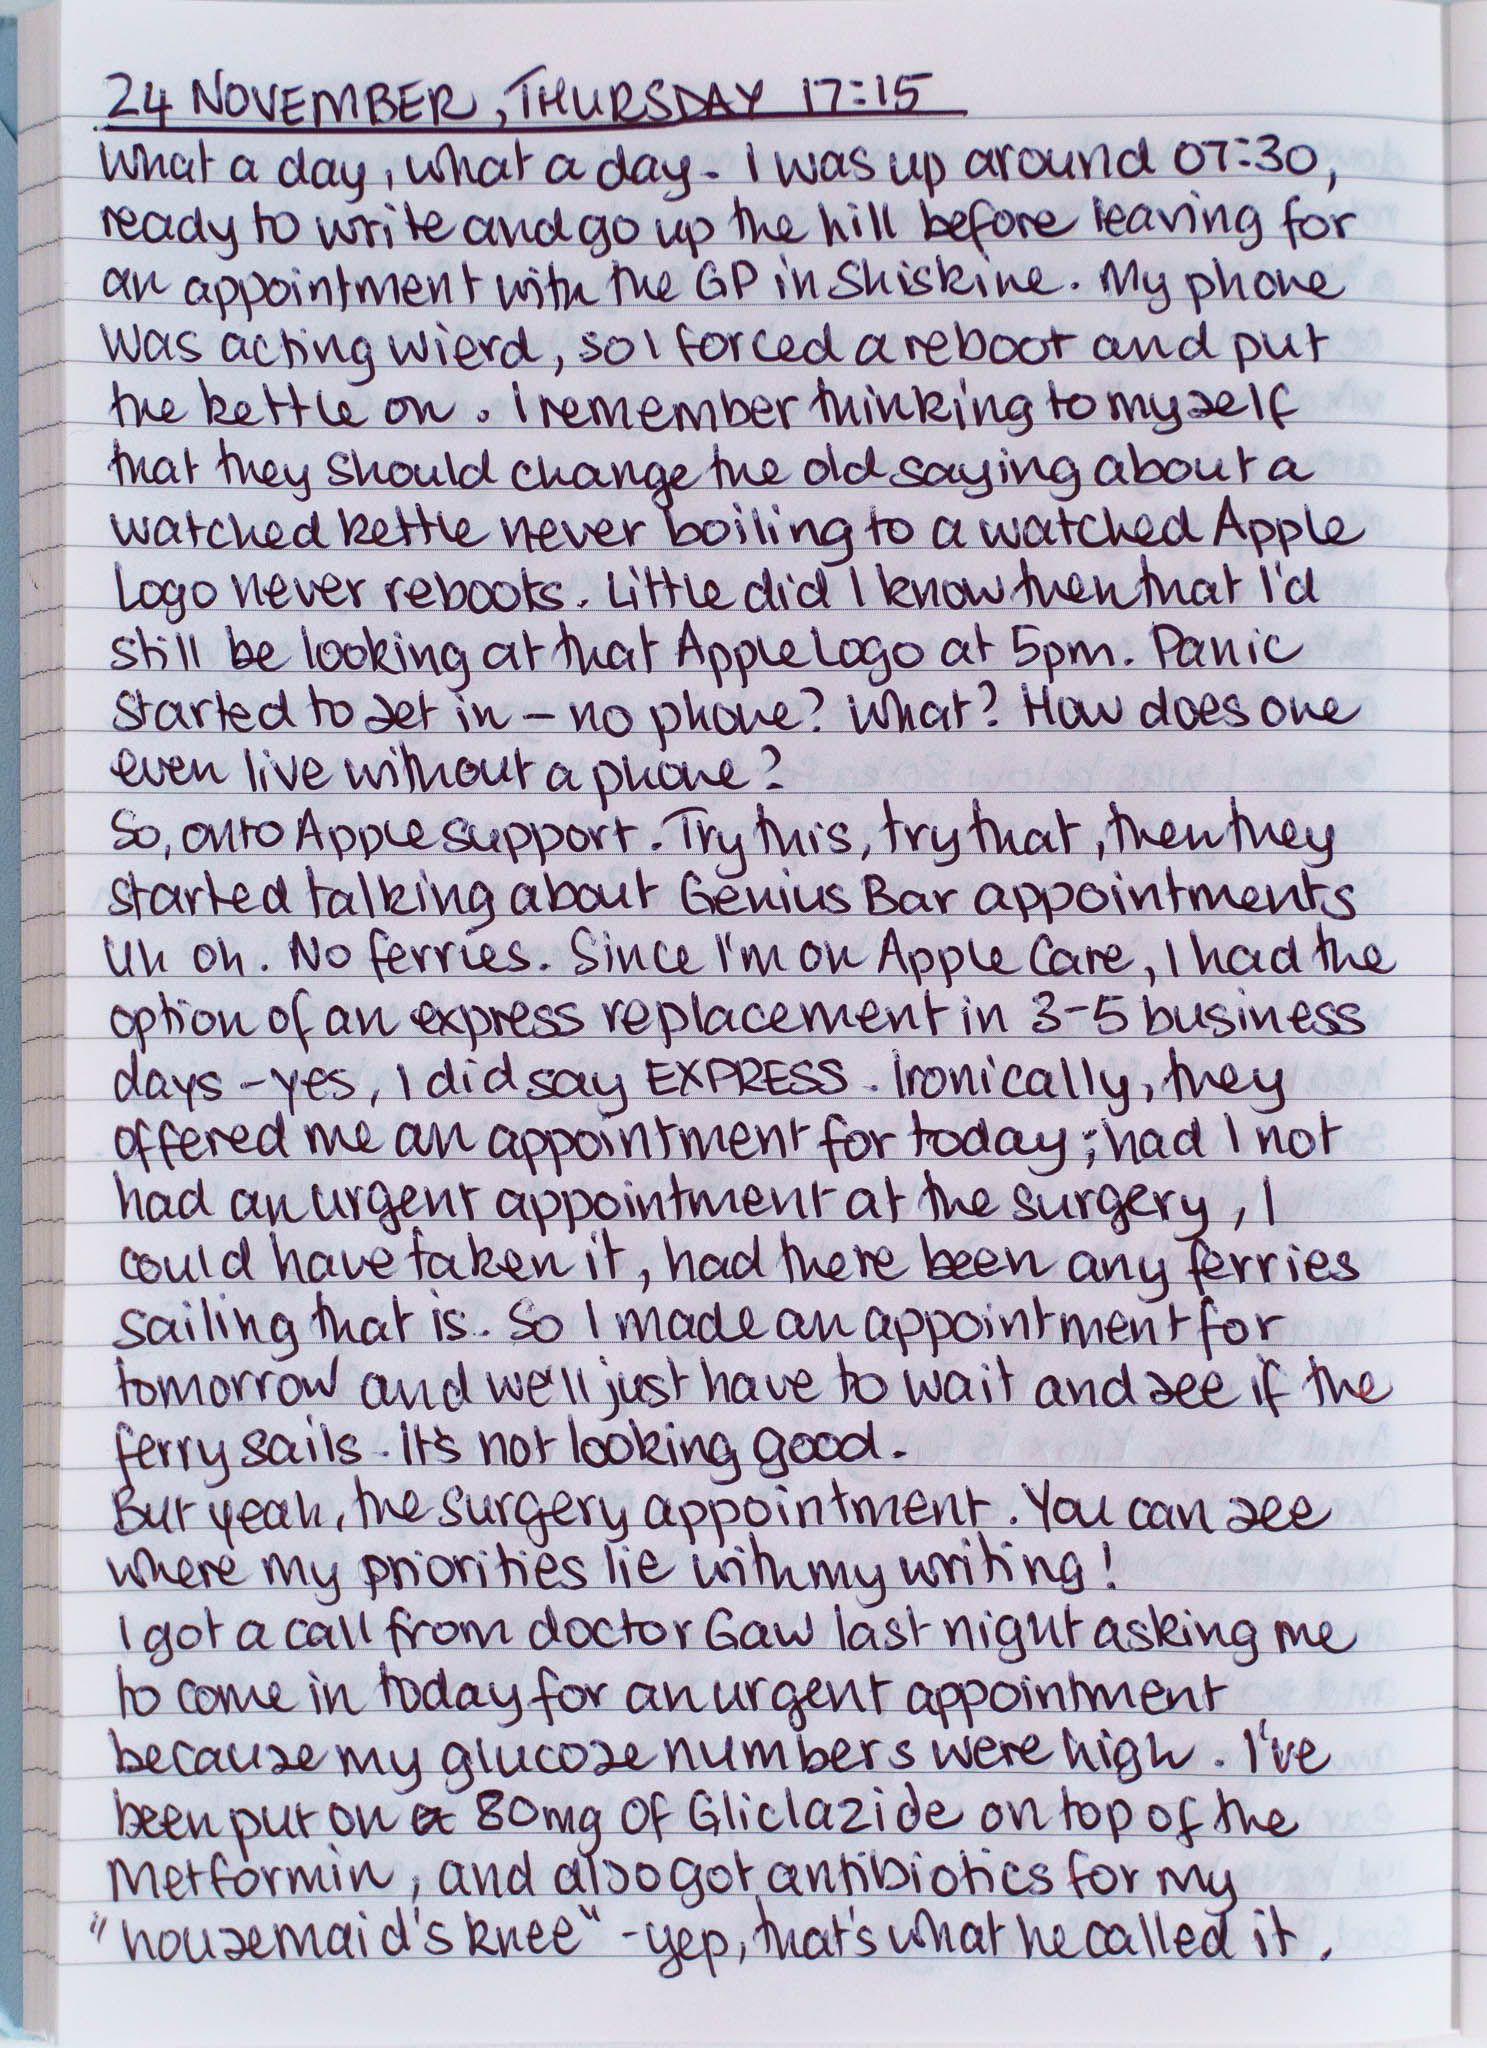 24 NOVEMBER, THURSDAY 17:15
What a day, what a day. I was up around 07:30,
ready to write and go up the hill before leaving for
an appointment with the GP in Shiskine. My phone
was acting wierd, so I forced a reboot and put
the kettle on. I remember thinking to myself
that they should change the old saying about a
watched kettle never boiling to a watched Apple
Logo never reboots. Little did I know then that I'd
still be looking at that Apple Logo at 5pm. Panic
started to set in - no phone? What? How does one
even live without a phone?
So, onto Apple support. Try this, try that, then they
started talking about Genius Bar appointments
Uh oh. No ferries. Since I'm on Apple Care, I had the
option of an express replacement in 3-5 business
days - yes, I did say EXPRESS. Ironically, they
offered me an appointment for today; had I not
had an urgent appointment at the surgery, I
could have taken it, had there been any ferries
sailing that is. So I made an appointment for
tomorrow and we'll just have to wait and see if the
ferry sails. It's not looking good.
But yeah, the surgery appointment. You can see
where my priorities lie with my writing!
I got a call from doctor Gaw last night asking me
to come in today for an urgent appointment
because my glucose numbers were high. I've
been put on 80mg of Gliclazide on top of the
Metformin, and also got antibiotics for my
"housemaid's knee" - yep, that's what he called it.